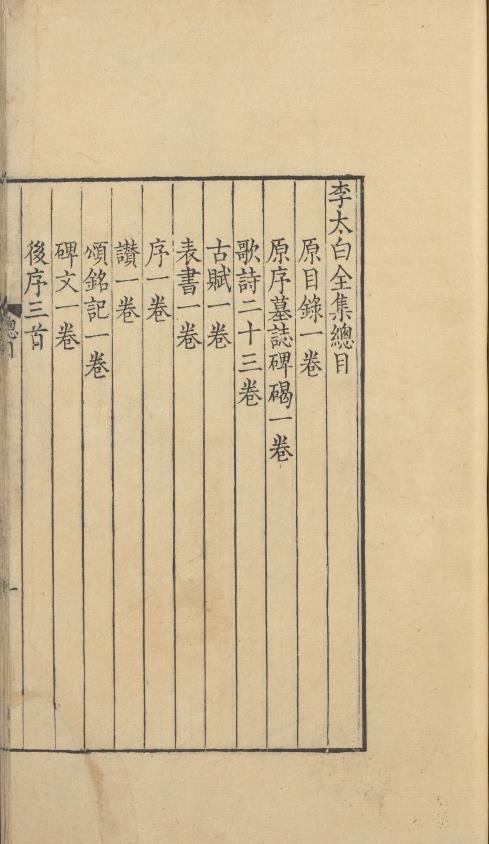 李太白全集總目
原目錄一卷
原序墓誌碑碣一卷
歌詩二十三卷
古賦一卷
表書一卷
序一卷
讚一卷
頌銘記一卷
碑文一卷
後序三首
總目
一